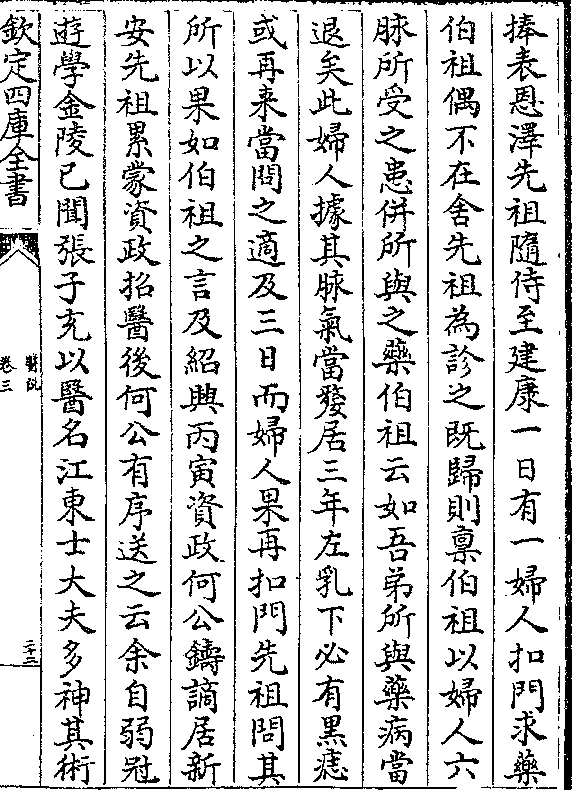 捧表恩澤先祖隨侍至建康一日有一婦人扣門求藥
伯祖偶不在舍先祖為診之既歸則稟伯祖以婦人六
脉所受之患併所與之藥伯祖云如吾弟所與藥病當
退矣此婦人據其脉氣當發居三年左乳下必有黑痣
或再来當問之適及三日而婦人果再扣門先祖問其
所以果如伯祖之言及紹興丙寅資政何公鑄謫居新
安先祖累蒙資政招醫後何公有序送之云余自弱冠
遊學金陵已聞張子充以醫名江東士大夫多神其術
欽定四庫全書
醫説
卷三
二十三